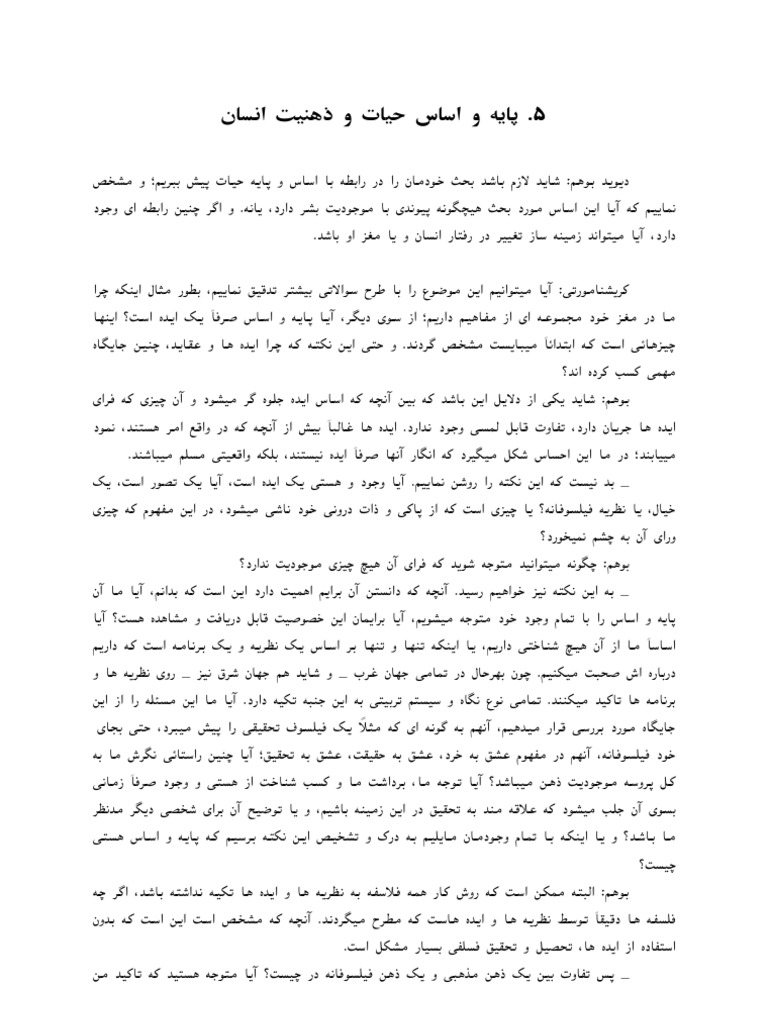 ۵. پایه و اساس حیات و ذهنیت انسان
دیوید بوهم: شاید لازم باشد بحث خودمان را در رابطه با اساس و پایه حیات پیش ببریم؛ و مشخص
نماییم که آیا این اساس مورد بحث هیچگونه پیوندی با موجودیت بشر دارد، یانه. و اگر چنین رابطه ای وجود
دارد، آیا میتواند زمینه ساز تغییر در رفتار انسان و یا مغز او باشد.
کریشنامورتی: آیا میتوانیم این موضوع را با طرح سوالاتی بیشتر تدقیق نماییم، بطور مثال اینکه چرا
ما در مغز خود مجموعه ای از مفاهیم داریم؛ از سوی دیگر، آیا پایه و اساس صرفاً یک ایده است؟ اینها
چیزهائی است که ابتدائاً میبایست مشخص گردند. و حتی این نکته که چرا ایده ها و عقاید، چنین جایگاه
مهمی کسب کرده اند؟
بوهم: شاید یکی از دلایل این باشد که بین آنچه که اساس ایده جلوه گر میشود و آن چیزی که فرای
ایده ها جریان دارد، تفاوت قابل لمسی وجود ندارد. ایده ها غالباً بیش از آنچه که در واقع امر هستند، نمود
مییابند؛ در ما این احساس شکل میگیرد که انگار آنها صرفاً ایده نیستند، بلکه واقعیتی مسلم میباشند.
_ بد نیست که این نکته را روشن نماییم. آیا وجود و هستی یک ایده است، آیا یک تصور است، یک
خیال، یا نظریه فیلسوفانه؟ یا چیزی است که از پاکی و ذات درونی خود ناشی میشود، در این مفهوم که چیزی
ورای آن به چشم نمیخورد؟
بوهم: چگونه میتوانید متوجه شوید که فرای آن هیچ چیزی موجودیت ندارد؟
_ به این نکته نیز خواهیم رسید. آنچه که دانستن آن برایم اهمیت دارد این است که بدانم، آیا ما آن
پایه و اساس را با تمام وجود خود متوجه میشویم، آیا برایمان این خصوصیت قابل دریافت و مشاهده هست؟ آیا
اساساً ما از آن هیچ شناختی داریم، یا اینکه تنها و تنها بر اساس یک نظریه و یک برنامه است که داریم
درباره اش صحبت میکنیم. چون بهرحال در تمامی جهان غرب _ و شاید هم جهان شرق نیز _ روی نظریه ها و
برنامه ها تاکید میکنند. تمامی نوع نگاه و سیستم تربیتی به این جنبه تکیه دارد. آیا ما این مسئله را از این
جایگاه مورد بررسی قرار میدهیم، آنهم به گونه ای که مثلاً یک فیلسوف تحقیقی را پیش میبرد، حتی بجای
خود فیلسوفانه، آنهم در مفهوم عشق به خرد، عشق به حقیقت، عشق به تحقیق؛ آیا چنین راستائی نگرش ما به
کل پروسه موجودیت ذهن میباشد؟ آیا توجه ما، برداشت ما و کسب شناخت از هستی و وجود صرفاً زمانی
بسوی آن جلب میشود که علاقه مند به تحقیق در این زمینه باشیم، و یا توضیح آن برای شخصی دیگر مدنظر
ما باشد؟ و یا اینکه با تمام وجودمان مایلیم به درک و تشخیص این نکته برسیم که پایه و اساس هستی
چیست؟
بوهم: البته ممکن است که روش کار همه فلاسفه به نظریه ها و ایده ها تکیه نداشته باشد، اگر چه
فلسفه ها دقیقاً توسط نظریه ها و ایده هاست که مطرح میگردند. آنچه که مشخص است این است که بدون
استفاده از ایده ها، تحصیل و تحقیق فسلفی بسیار مشکل است.
_ پس تفاوت بین یک ذهن مذهبی و یک ذهن فیلسوفانه در چیست؟ آیا متوجه هستید که تاکید من